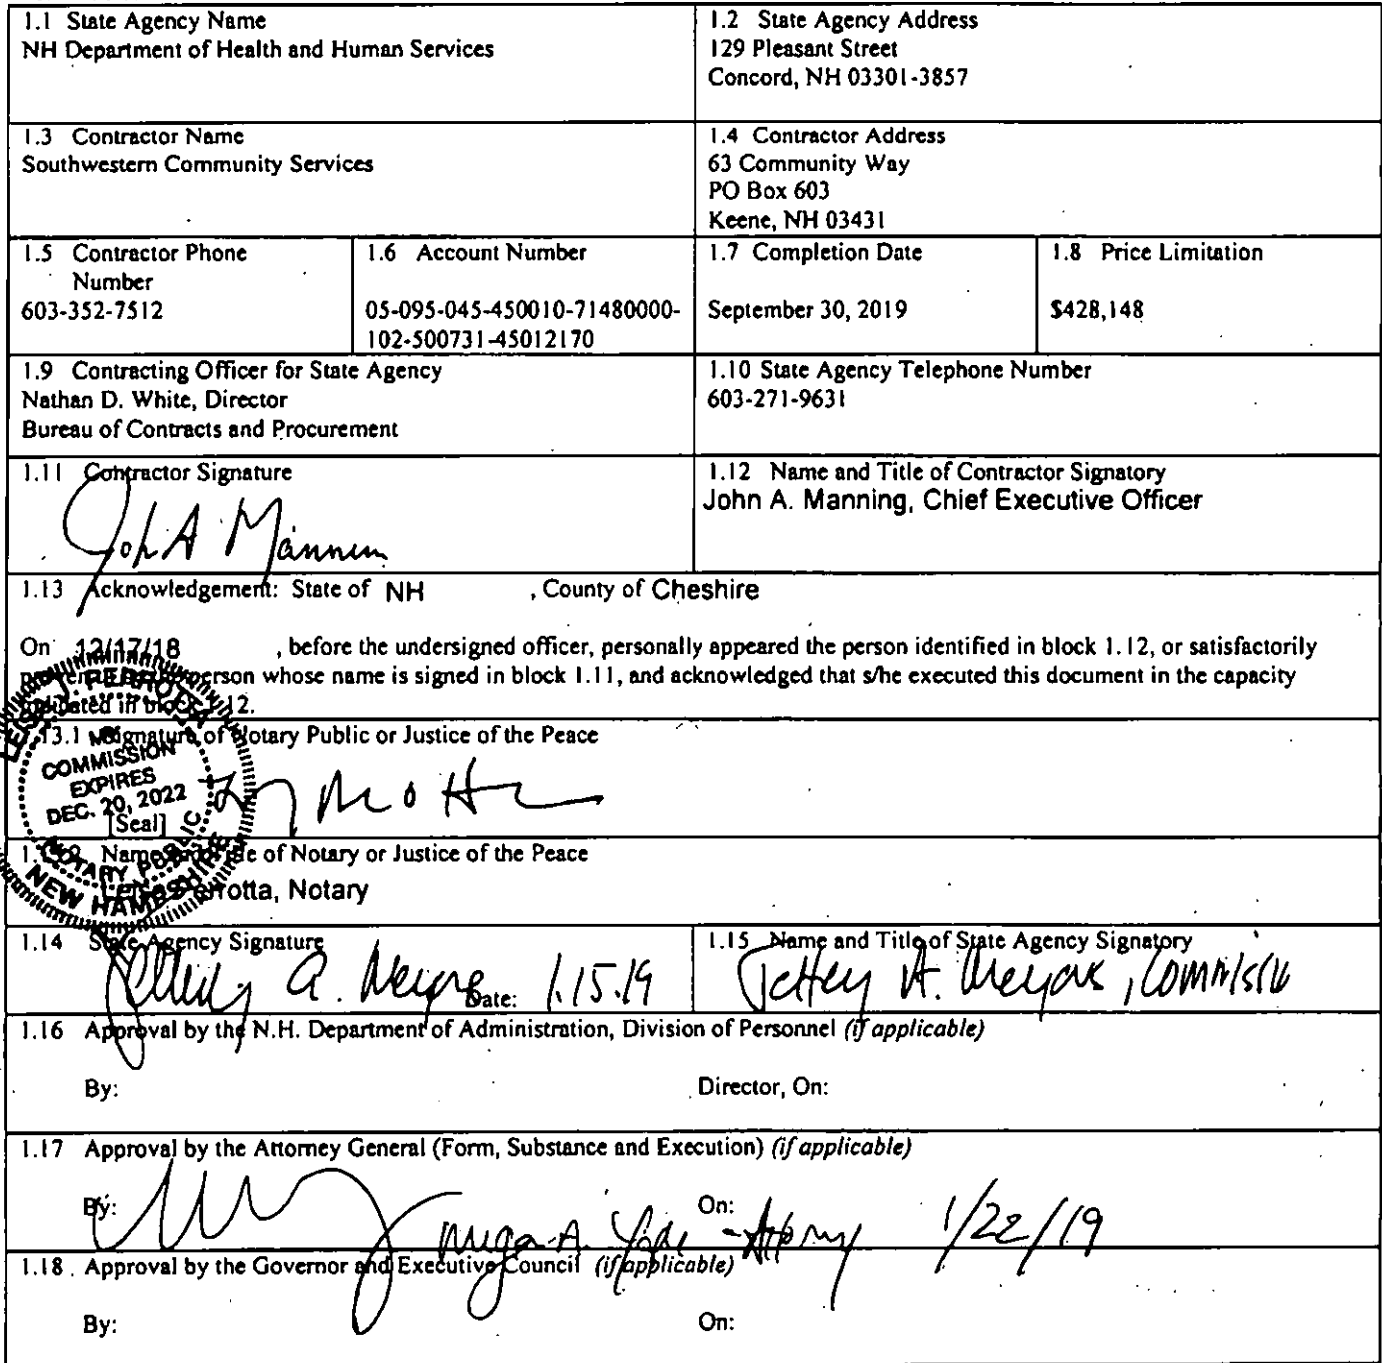 1.1 State Agency Name
NH Department of Health and Human Services
1.2 State Agency Address
129 Pleasant Street
Concord, NH 03301-3857
1.3 Contractor Name
Southwestern Community Services
1.4 Contractor Address
63 Community Way
PO Box 603
Keene, NH 03431
1.5 Contractor Phone
Number
603-352-7512
1.6 Account Number
05-095-045-450010-71480000-
102-500731-45012170
1.7 Completion Date
September 30, 2019
1.8 Price Limitation
$428,148
1.9 Contracting Officer for State Agency
Nathan D. White, Director
Bureau of Contracts and Procurement
1.10 State Agency Telephone Number
603-271-9631
1.11 Contractor Signature
John A Manning
1.12 Name and Title of Contractor Signatory
John A. Manning, Chief Executive Officer
1.13 Acknowledgement: State of NH , County of Cheshire
On 12/17/18 , before the undersigned officer, personally appeared the person identified in block 1.12, or satisfactorily
person whose name is signed in block 1.11, and acknowledged that s/he executed this document in the capacity
indicated in block 1.12.
13.1 Signature of Notary Public or Justice of the Peace
J. PERROTTA
COMMISSION
EXPIRES
DEC. 20, 2022
[Seal]
NOTARY PUBLIC
NEW HAMPSHIRE
Name of Notary or Justice of the Peace
Perrotta, Notary
1.14 State Agency Signature
A. Meyers Date: 1.15.19
1.15 Name and Title of State Agency Signatory
Jeffrey A. Meyers, Commissi
1.16 Approval by the N.H. Department of Administration, Division of Personnel (if applicable)
By: Director, On:
1.17 Approval by the Attorney General (Form, Substance and Execution) (if applicable)
By: On:
A. - Attorney 1/22/19
1.18 Approval by the Governor and Executive Council (if applicable)
By: On: